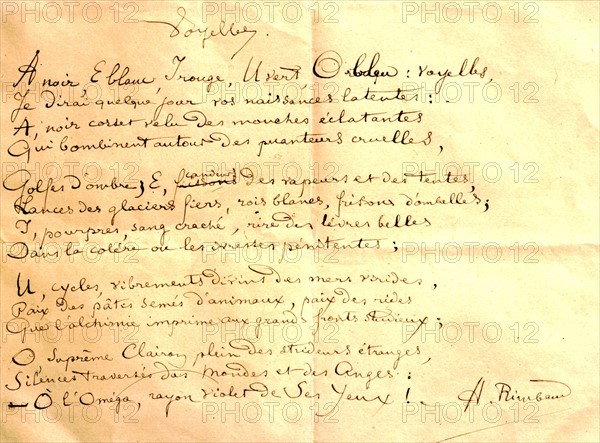 Voyelles.
A noir, E blanc, I rouge, U vert, O bleu : voyelles,
Je dirai quelque jour vos naissances latentes :
A, noir corset velu des mouches éclatantes
Qui bombinent autour des puanteurs cruelles,
Golfes d'ombre ; E, frissons candeurs des vapeurs et des tentes,
Lances des glaciers fiers, rois blancs, frissons d'ombelles ;
I, pourpres, sang craché, rire des lèvres belles
Dans la colère ou les ivresses pénitentes ;
U, cycles, vibrements divins des mers virides,
Paix des pâtis semés d'animaux, paix des rides
Que l'alchimie imprime aux grands fronts studieux ;
O Suprême Clairon plein des strideurs étranges,
Silences traversés des Mondes et des Anges :
— O l'Oméga, rayon violet de Ses Yeux !
A. Rimbaud
PHOTO12